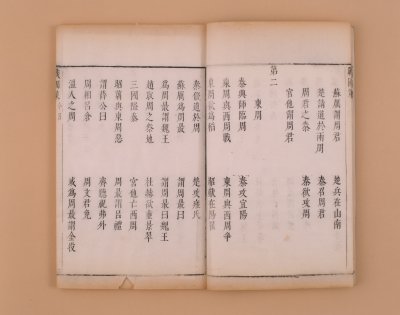 蘇厲謂周君 楚兵在山南
楚請道於兩周 秦召周君
周君之秦 秦欲攻周
宮他謂周君
第二
東周
秦興師臨周 秦攻宜陽
東周與西周戰 東周與西周爭
東周欲為稻 昭獻在陽翟
秦假道於周 楚攻雍氏
蘇厲為周最 謂周最曰
為周最謂魏王 謂周最曰魏王
趙取周之祭地 杜赫欲重景翠
三國隘秦 宮他亡西周
昭翦與東周惡 周最謂呂禮
謂薛公曰 齊聽祝弗
周相呂倉 周文君免
溫人之周 或為周最謂金投